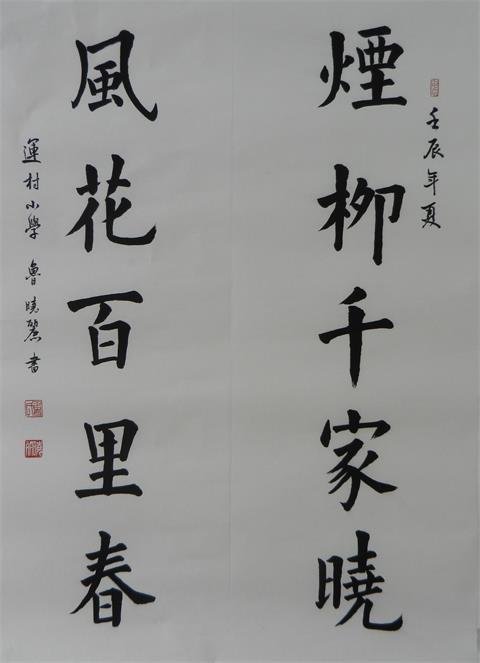 壬辰年夏
煙柳千家曉
風花百里春
運村小學 魯曉麗書